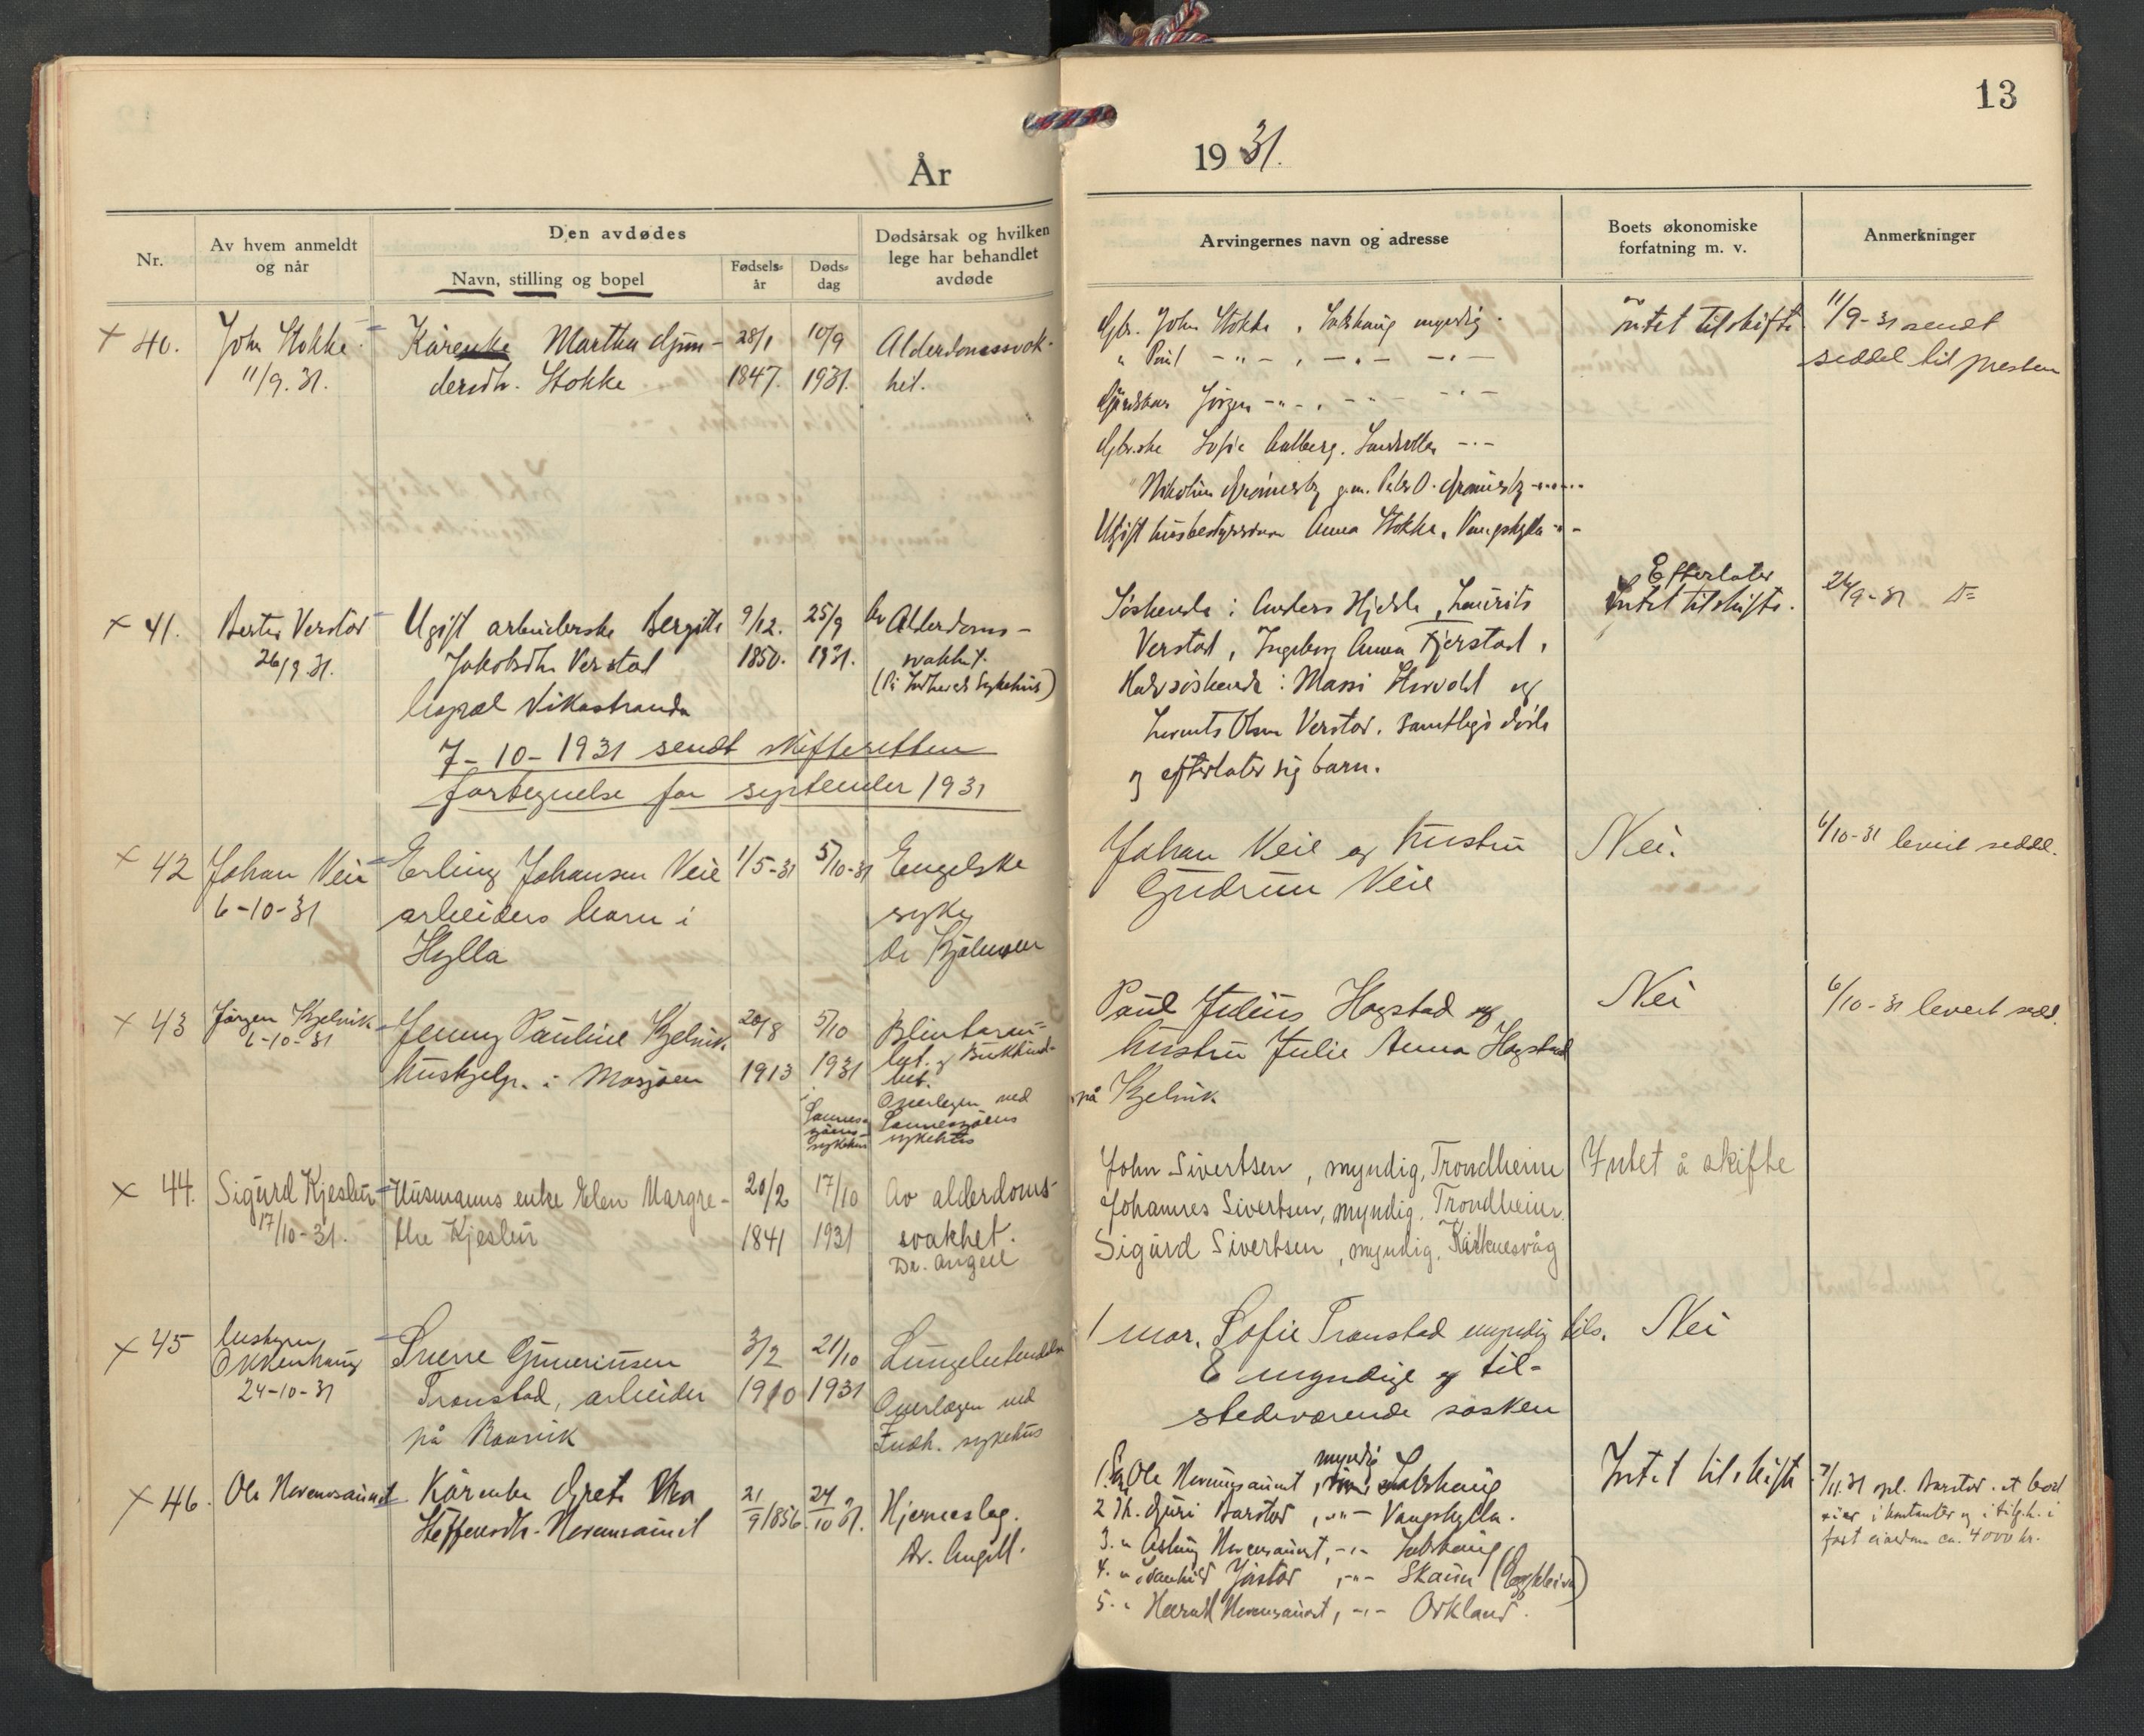 13
År 1931.
Nr.
Av hvem anmeldt
og når
Den avdødes
Navn, stilling og bopel
Fødsels-
år
Døds-
dag
Dødsårsak og hvilken
lege har behandlet
avdøde
Arvingernes navn og adresse
Boets økonomiske
forfatning m. v.
Anmerkninger
+ 40.
John Stokke
11/9. 31.
Kårenke Martha
Stokke
28/1
1847.
10/9
1931.
Alderdomssvak-
het.
Gbr. John Stokke, myndig.
" Paul - " - , - " - - " -
Jørgen - " - , - " - - " -
Gbr.ske Sofie Aalberg. - " -
Anna Stokke, Vangshylla - " -
Intet til skifte
11/9-31 sendt
seddel til presten
+ 41.
Verstad
26/9 31.
Ugift arbeiderske Bergitte
Jakobsdtr. Verstad
bopæl Vikastranda
9/12.
1850.
25/9
1931.
Av Alderdoms-
svakhet.
(På Sykehus)
Søskende: Anders Hjelde, Laurits
Verstad, Ingeborg Anna Tjerstad,
Halvsøskende: Massi og
Olsen Verstad. samtlige døde
og efterlater sig barn.
Efterlater
Intet til skifte.
26/9-31 D=
7-10-1931 sendt skifteretten
fortegnelse for september 1931
+ 42
Johan Veie
6-10-31
Erling Johansen Veie
arbeiders barn i
Hylla
1/5-31
5/10-31
Engelske
syke
Johan Veie og hustru
Gudrun Veie
Nei.
6/10-31 levert seddel.
+ 43
Jørgen Kjelvik
6-10-31
Jenny Pauline Kjelvik
hushjelp. i Mosjøen
20/8
1913
5/10
1931
Sannes-
sjøens
sykehus
Blintarm-
bet. og Bukhinde-
bet.
Overlegen ved
Sannessjøens
sykehus
Paul Julius Hagstad og
hustru Julie Anna Hagstad
på Kjelvik
Nei
6/10-31 levert sedd.
x 44.
Sigurd Kjeslur
17/10-31.
Husmanns enke Elen Margre-
the Kjeslur
20/2
1841
17/10
1931
Av alderdoms-
svakhet.
Dr. Angell
John Sivertsen, myndig, Trondheim
Johannes Sivertsen, myndig, Trondheim.
Sigurd Sivertsen, myndig, Kirknesvåg
Intet å skifte
x 45
Okkenhaug
24-10-31
Sverre
Tronstad, arbeider
på
3/2
1910
21/10
1931
Overlægen ved
Indh. sykehus
1 mor. Sofie Tronstad myndig tils.
8 myndige og til-
stedeværende søsken
Nei
x 46.
Ole Nevermsaunet
Kårenke Grete
Steffensdtr. Nevermsaunet
21/9 1856.
24/10 31.
Hjerneslag.
Dr. Angell.
1. Ole Nevermsaunet, myndig
2. Guri Barstad, - " - Vangshylla.
3. " Aslaug Nevermsaunet, - " -
4. " Jåstad, - " - Skaun
5. " Harald Nevermsaunet, - " - Orkland.
Intet til skifte
fast eiendom ca. 4000 kr.